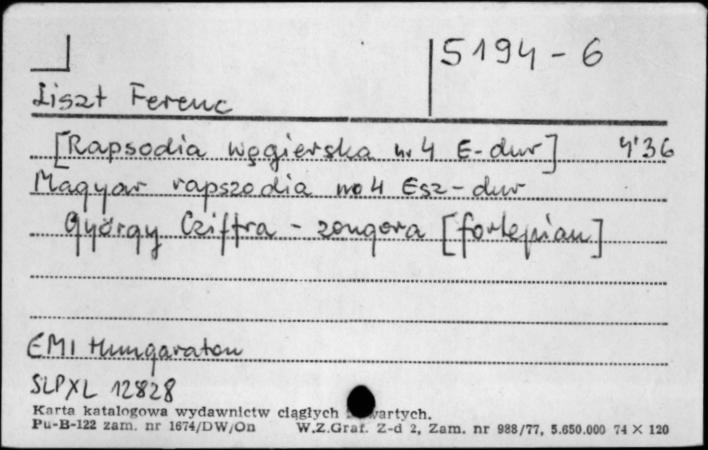 5194-6
Liszt Ferenc
[Rapsodia węgierska nr 4 E-dur] 4'36
Magyar rapszodia no 4 Esz-dur
György Cziffra - zongora [fortepian]
EMI Hungaraton
SLPXL 12828
Karta katalogowa wydawnictw ciągłych wartych.
Pu-B-122 zam. nr 1674/DW/On W.Z.Graf. Z-d 2, Zam. nr 988/77, 5.650.000 74 X 120